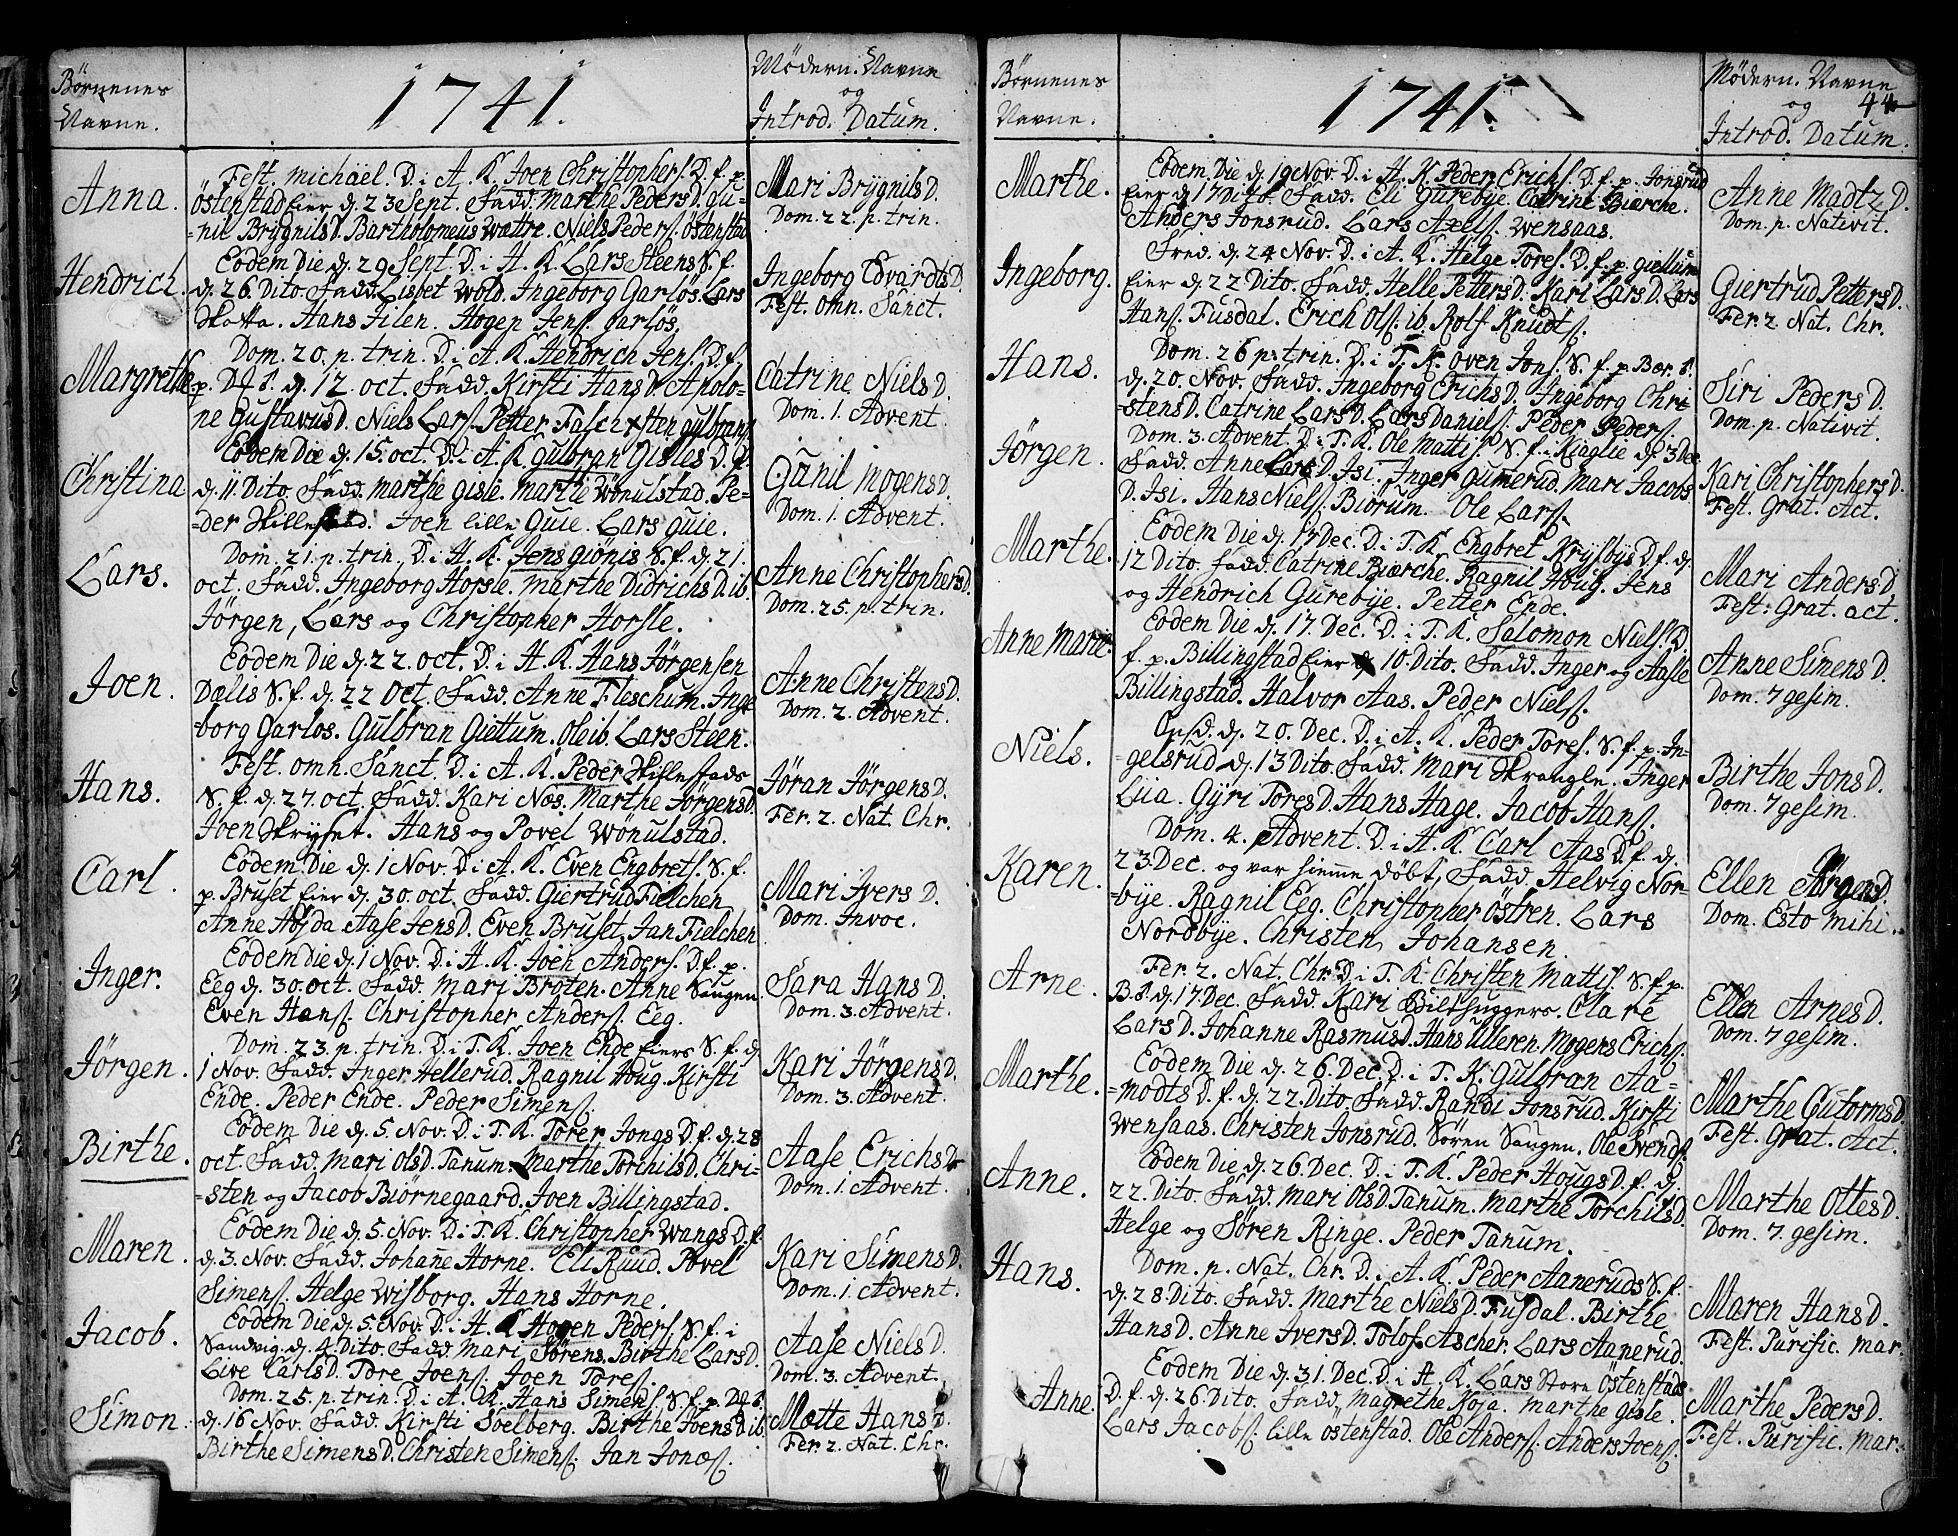 Börnenes
Navne.
1741.
Mödern. Navne
og
Introd. Datum.
Anna.
Fest. michäel. D. i A. K. Joen Christophers. D. f. p.
Östenstad Eier d. 23 Sept. Fadd. Marthe Peders D. Gu-
=nil Brygnils D. Bartholomeus Wættre. Niels Peders. Östenstad
Mari Brygnils D.
Dom. 22. p. trin.
Hendrich.
Eodem Die d. 29 Sept. D. i A. K. Lars Steens S. f.
d. 26. Dito. Fadd. Lisbet Wold. Ingeborg Garlös. Lars
Skotta. Hans Filen. Hogen Jens. Garlös.
Ingeborg Edvardts D.
Fest. Omn. Sanct.
Margrethe
Dom. 20. p. trin. D. i A. K. Hendrich Jens. D. f.
p. d. 12. oct. Fadd. Kirsti Hans D. Apolo-
ne Gustavus D. Niels Lars. Petter Falch. Sten Gulbrans.
Catrine Niels D.
Dom. 1. Advent.
Christina
Eodem Die d. 15. oct. D. i A. K. Gulbran Gisles D. f.
d. 11. Dito. Fadd. Marthe Gisle. Marthe Wönulstad. Pe-
=der Skillestad. Joen lille Guie. Lars Guie.
Gunil Mogens D.
Dom. 1. Advent.
Lars.
Dom. 21. p. trin. D. i A. K. Jens Gionis S. f. d. 21.
oct. Fadd. Ingeborg Horsle. Marthe Didrichs D. ib.
Jörgen, Lars og Christopher Horsle.
Anne Christophers D.
Dom. 25. p. trin.
Joen.
Eodem Die d. 22. oct. D. i A. K. Hans Jörgensen
Dælis S. f. d. 22 Oct. Fadd. Anne Fleschum. Inge
=borg Garlos. Gulbran Giettum. Ole ib. Lars Steen.
Anne Christens D.
Dom. 2. Advent.
Hans.
Fest. omn. Sanct. D. i A. K. Peder Skillestads
S. f. d. 27. oct. Fadd. Kari Nos. Marthe Jörgens D.
Joen Skryset. Hans og Povel Wönulstad.
Jöran Jörgens D.
Fer. 2. Nat. Chr.
Carl.
Eodem Die d. 1 Nov. D. i A. K. Even Engbrets. S. f.
p. Bruset Eier d. 30. oct. Fadd. Giertrud Fielchen
Anne Aasda Aase Jens D. Even Bruset. Jan Fielchen
Mari Ivers D.
Dom. Invoc.
Inger.
Eodem Die d. 1 Nov. D. i A. K. Joen Anders. D. f. p.
Eeg d. 30. oct. Fadd. Mari Broten. Anne Saugen.
Even Hans. Christopher Anders. Eeg.
Sara Hans D.
Dom. 3. Advent.
Jörgen.
Dom. 23. p. trin. D. i T. K. Joen Ende Eiers S. f. d.
1 Nov. Fadd. Inger Hellerud. Ragnil Houg. Kirsti
Ende. Peder Ende. Peder Simens.
Kari Jörgens D.
Dom. 3. Advent.
Birthe.
Eodem Die d. 5. Nov. D. i T. K. Torer Jongs D. f. d. 28
oct. Fadd. Mari Ols D. Tanum. Marthe Torchils D. Chri-
=sten og Jacob Biörnegaard. Joen Billingstad.
Aase Erichs D.
Dom. 1. Advent.
Maren.
Eodem Die d. 5. Nov. D. i T. K. Christopher Wangs D. f.
d. 3. Nov. Fadd. Johanne Horne. Eli Ruud. Povel
Simens. Helge Wisborg. Hans Horne.
Kari Simens D.
Dom. 1. Advent.
Jacob.
Eodem Die d. 5. Nov. D. i A. K. Hogen Peders. S. f. i
Sandvig. d. 4. Dito. Fadd. Mari Sörens. Birthe Lars D.
Live Carls D. Tore Joens. Joen Tores.
Aase Niels D.
Dom. 3. Advent.
Simon.
Dom. 25. p. trin. D. i A. K. Hans Simens. S. f. p.
d. 16 Nov. Fadd. Kirsti Soelberg. Birthe Joens D. ib.
Birthe Simens D. Christen Simens. Jan Jonæs.
Mætte Hans D.
Fer. 2. Nat. Chr.
Börnenes
Navne.
1741.
Mödern. Navne
og 44
Introd. Datum.
Marthe.
Eodem Die d. 19 Nov. D. i A. K. Peder Erichs. D. f. p. Jonsrud
Eier d. 17 Dito. Fadd. Eli Gurebye. Catrine Biærche.
Anders Jonsrud. Lars Axels. Wensaas.
Anne Madtz D.
Dom. p. Nativit.
Ingeborg.
Fred. d. 24 Nov. D. i A. K. Helge Tores. D. f. p. Giellum
Eier d. 22 Dito. Fadd. Helle Petters D. Kari Lars D. Lars
Hans. Fusdal. Erich Ols. ib. Rolf Knudts.
Giertrud Petters D.
Fer. 2. Nat. Chr.
Hans.
Dom. 26 p. trin. D. i T. K. Oven Jons. S. f. p. Bær. S.
d. 20. Nov. Fadd. Ingeborg Erichs D. Ingeborg Chri-
=stens D. Catrine Lars D. Lars Daniels. Peder Peders.
Siri Peders D.
Dom. p. Nativit.
Jörgen.
Dom. 3. Advent. D. i T. K. Ole Mattis. S. f. i Kiaglie d. 3 Dec.
Fadd. Anne Lars D. Isi. Inger Gummerud. Mari Jacobs
D. Isi. Hans Niels. Biörum. Ole Lars.
Kari Christophers D.
Fest. Grat. Act.
Marthe.
Eodem Die d. 17 Dec. D. i T. K. Engbret Krysbÿs D. f. d.
12 Dito. Fadd. Catrine Biærche. Ragnil Houg. Jens
og Hendrich Gurebÿe. Petter Ende.
Mari Anders D.
Fest. Grat. act.
Anne Marie.
Eodem Die d. 17. Dec. D. i T. K. Salomon Niels. D.
f. p. Billingstad Eier d. 10. Dito. Fadd. Inger og Aasle
Billingstad. Halvor Aas. Peder Niels.
Anne Simens D.
Dom. 7 gesim.
Niels.
Onsd. d. 20. Dec. D. i A. K. Peder Tores. S. f. p. In-
=gelsrud d. 13 Dito. Fadd. Mari Skrangle. Inger
Liia. Gÿri Tores D. Hans Hage. Jacob Hans.
Birthe Jons D.
Dom. 7 gesim.
Karen.
Dom. 4. Advent. D. i A. K. Carl Aas D. f. d.
23 Dec. og var hiemme döbt, Fadd. Helvig Nor-
=bÿe. Ragnil Eeg. Christopher Östren. Lars
Nordbÿe. Christen Johansen.
Ellen Jörgens D.
Dom. Esto mihi.
Arne.
Fer. 2. Nat. Chr. D. i T. K. Christen Mattis. S. f. p.
B. S. d. 17. Dec. Fadd. Kari Bilthuggers. Clare
Lars D. Johanne Rasmus D. Hans Ulleren. Mogens Erichs.
Ellen Arnes D.
Dom. 7 gesim.
Marthe.
Eodem Die d. 26. Dec. D. i T. K. Gulbran Aa-
=modts D. f. d. 22. Dito. Fadd. Randi Jonsrud. Kirsti
Wensaas. Christen Jonsrud. Sören Saugen. Ole Svends.
Marthe Gutorms D.
Fest. Grat. Act.
Anne.
Eodem Die d. 26. Dec. D. i T. K. Peder Hougs D. f. d.
22. Dito. Fadd. Mari Ols D. Tanum. Marthe Torchils D.
Helge og Sören Ringe. Peder Tanum.
Marthe Ottes D.
Dom. 7. gesim.
Hans.
Dom. p. Nat. Chr. D. i A. K. Peder Aaneruds S. f.
d. 28. Dito. Fadd. Marthe Niels D. Fusdal. Birthe
Hans D. Anne Ivers D. Tolof Ascher. Lars Aanerud.
Maren Hans D.
Fest. Purific. Mar.
Anne.
Eodem Die d. 31. Dec. D. i A. K. Lars Store Östenstads
D. f. d. 26. Dito. Fadd. Magrethe Kosa. Marthe Gisle.
Lars Jacobs. lille Östenstad. Ole Anders. Anders Joens.
Marthe Peders D.
Fest. Purific. Mar.